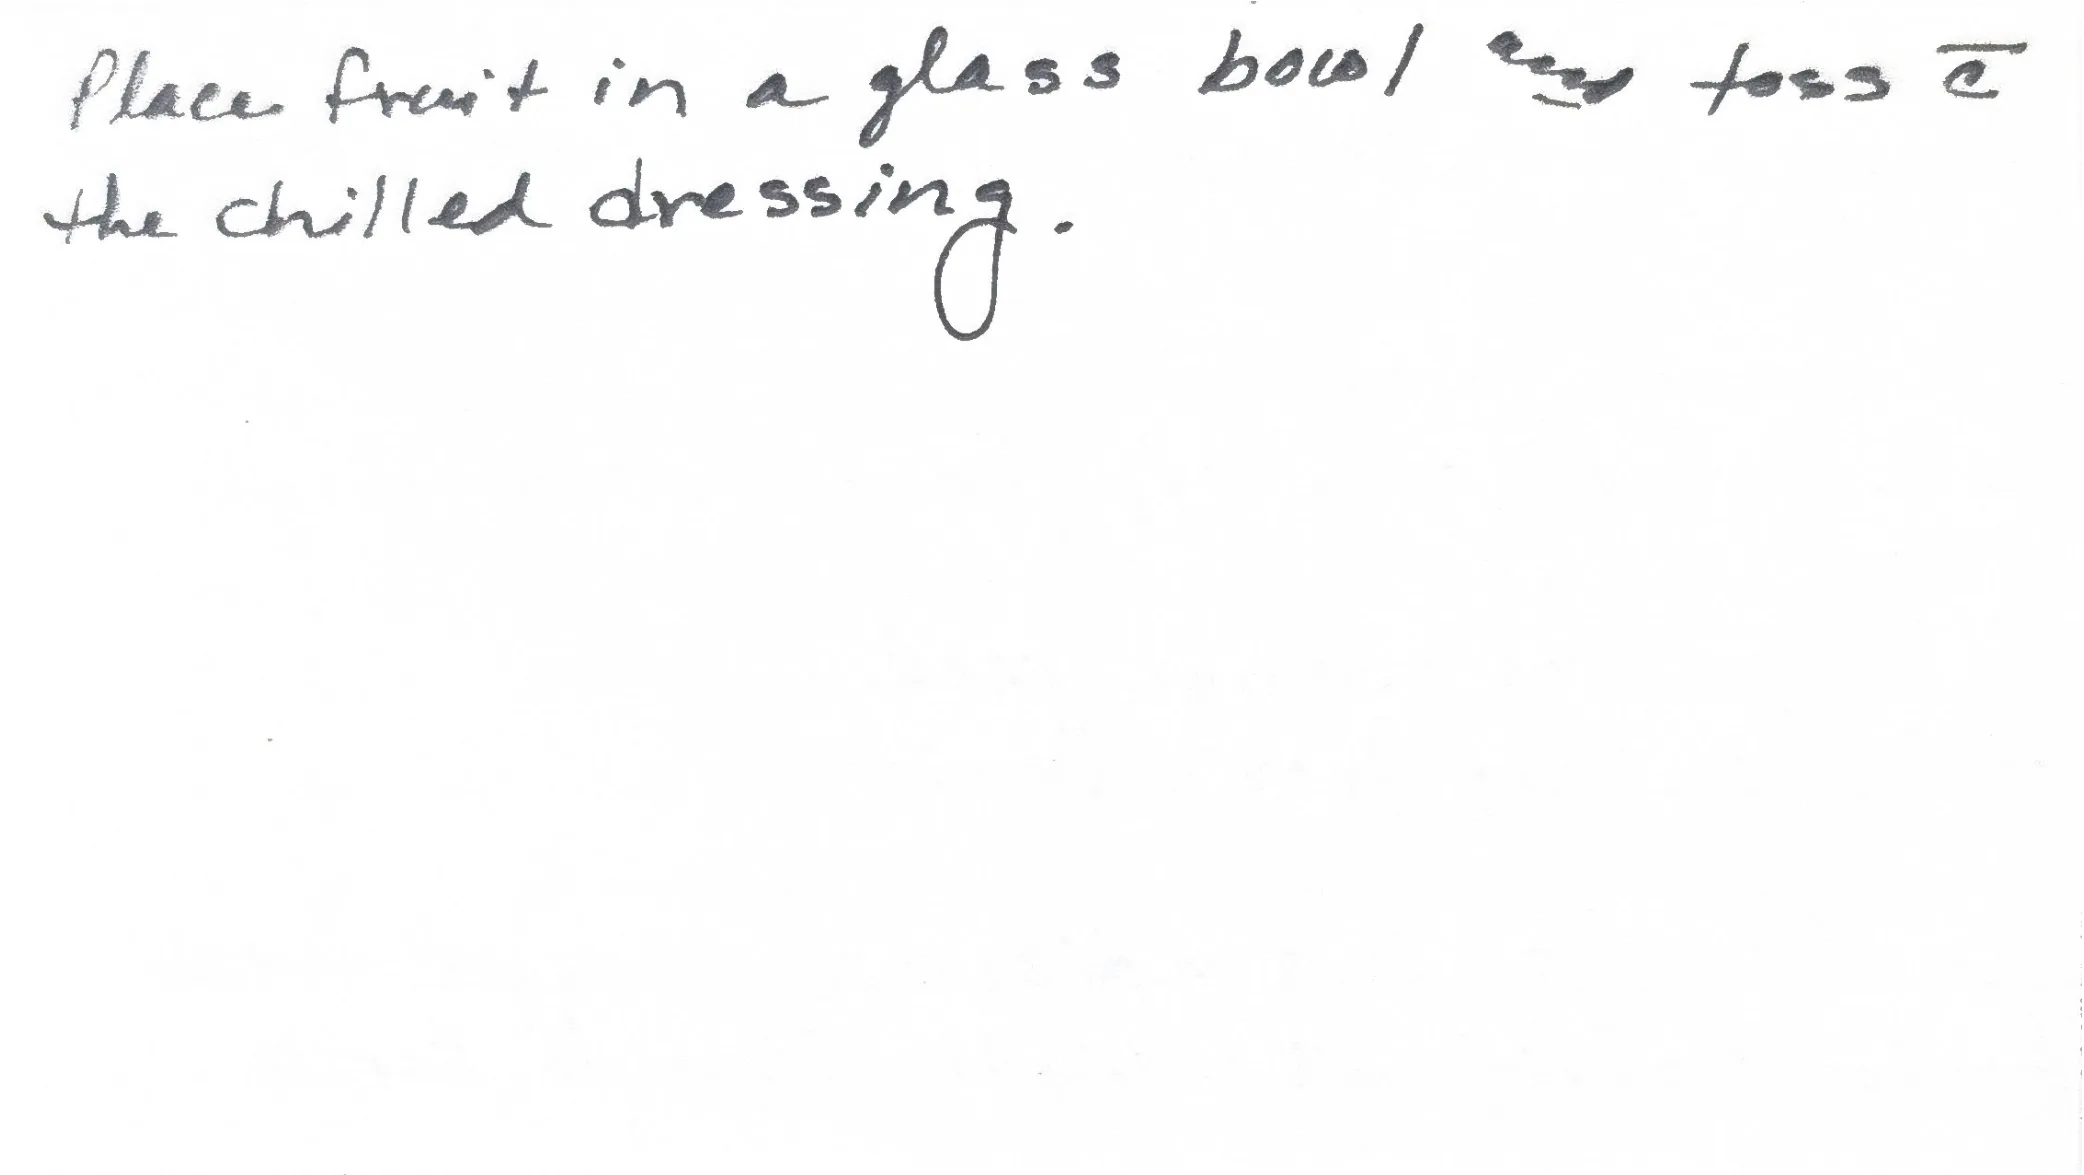 Place fruit in a glass bowl toss c̄
the chilled dressing.